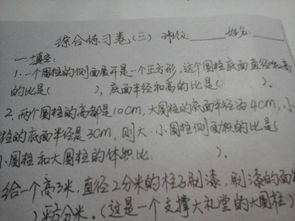 综合练习卷(三) 评价 姓名
一.填空:
1.一个圆柱的侧面展开是一个正方形,这个圆柱底面直径与高
的比是( ),底面半径和高的比是( )。
2.两个圆柱的高都是10cm,大圆柱的底面半径为4cm,小
圆柱的底面半径是3cm,则大、小圆柱侧面积的比是(
小圆柱和大圆柱的体积比 )。
给一个高3米,直径2分米的柱子刷漆,刷漆的面
)平方分米。(这是一个支撑大礼堂的大圆柱)